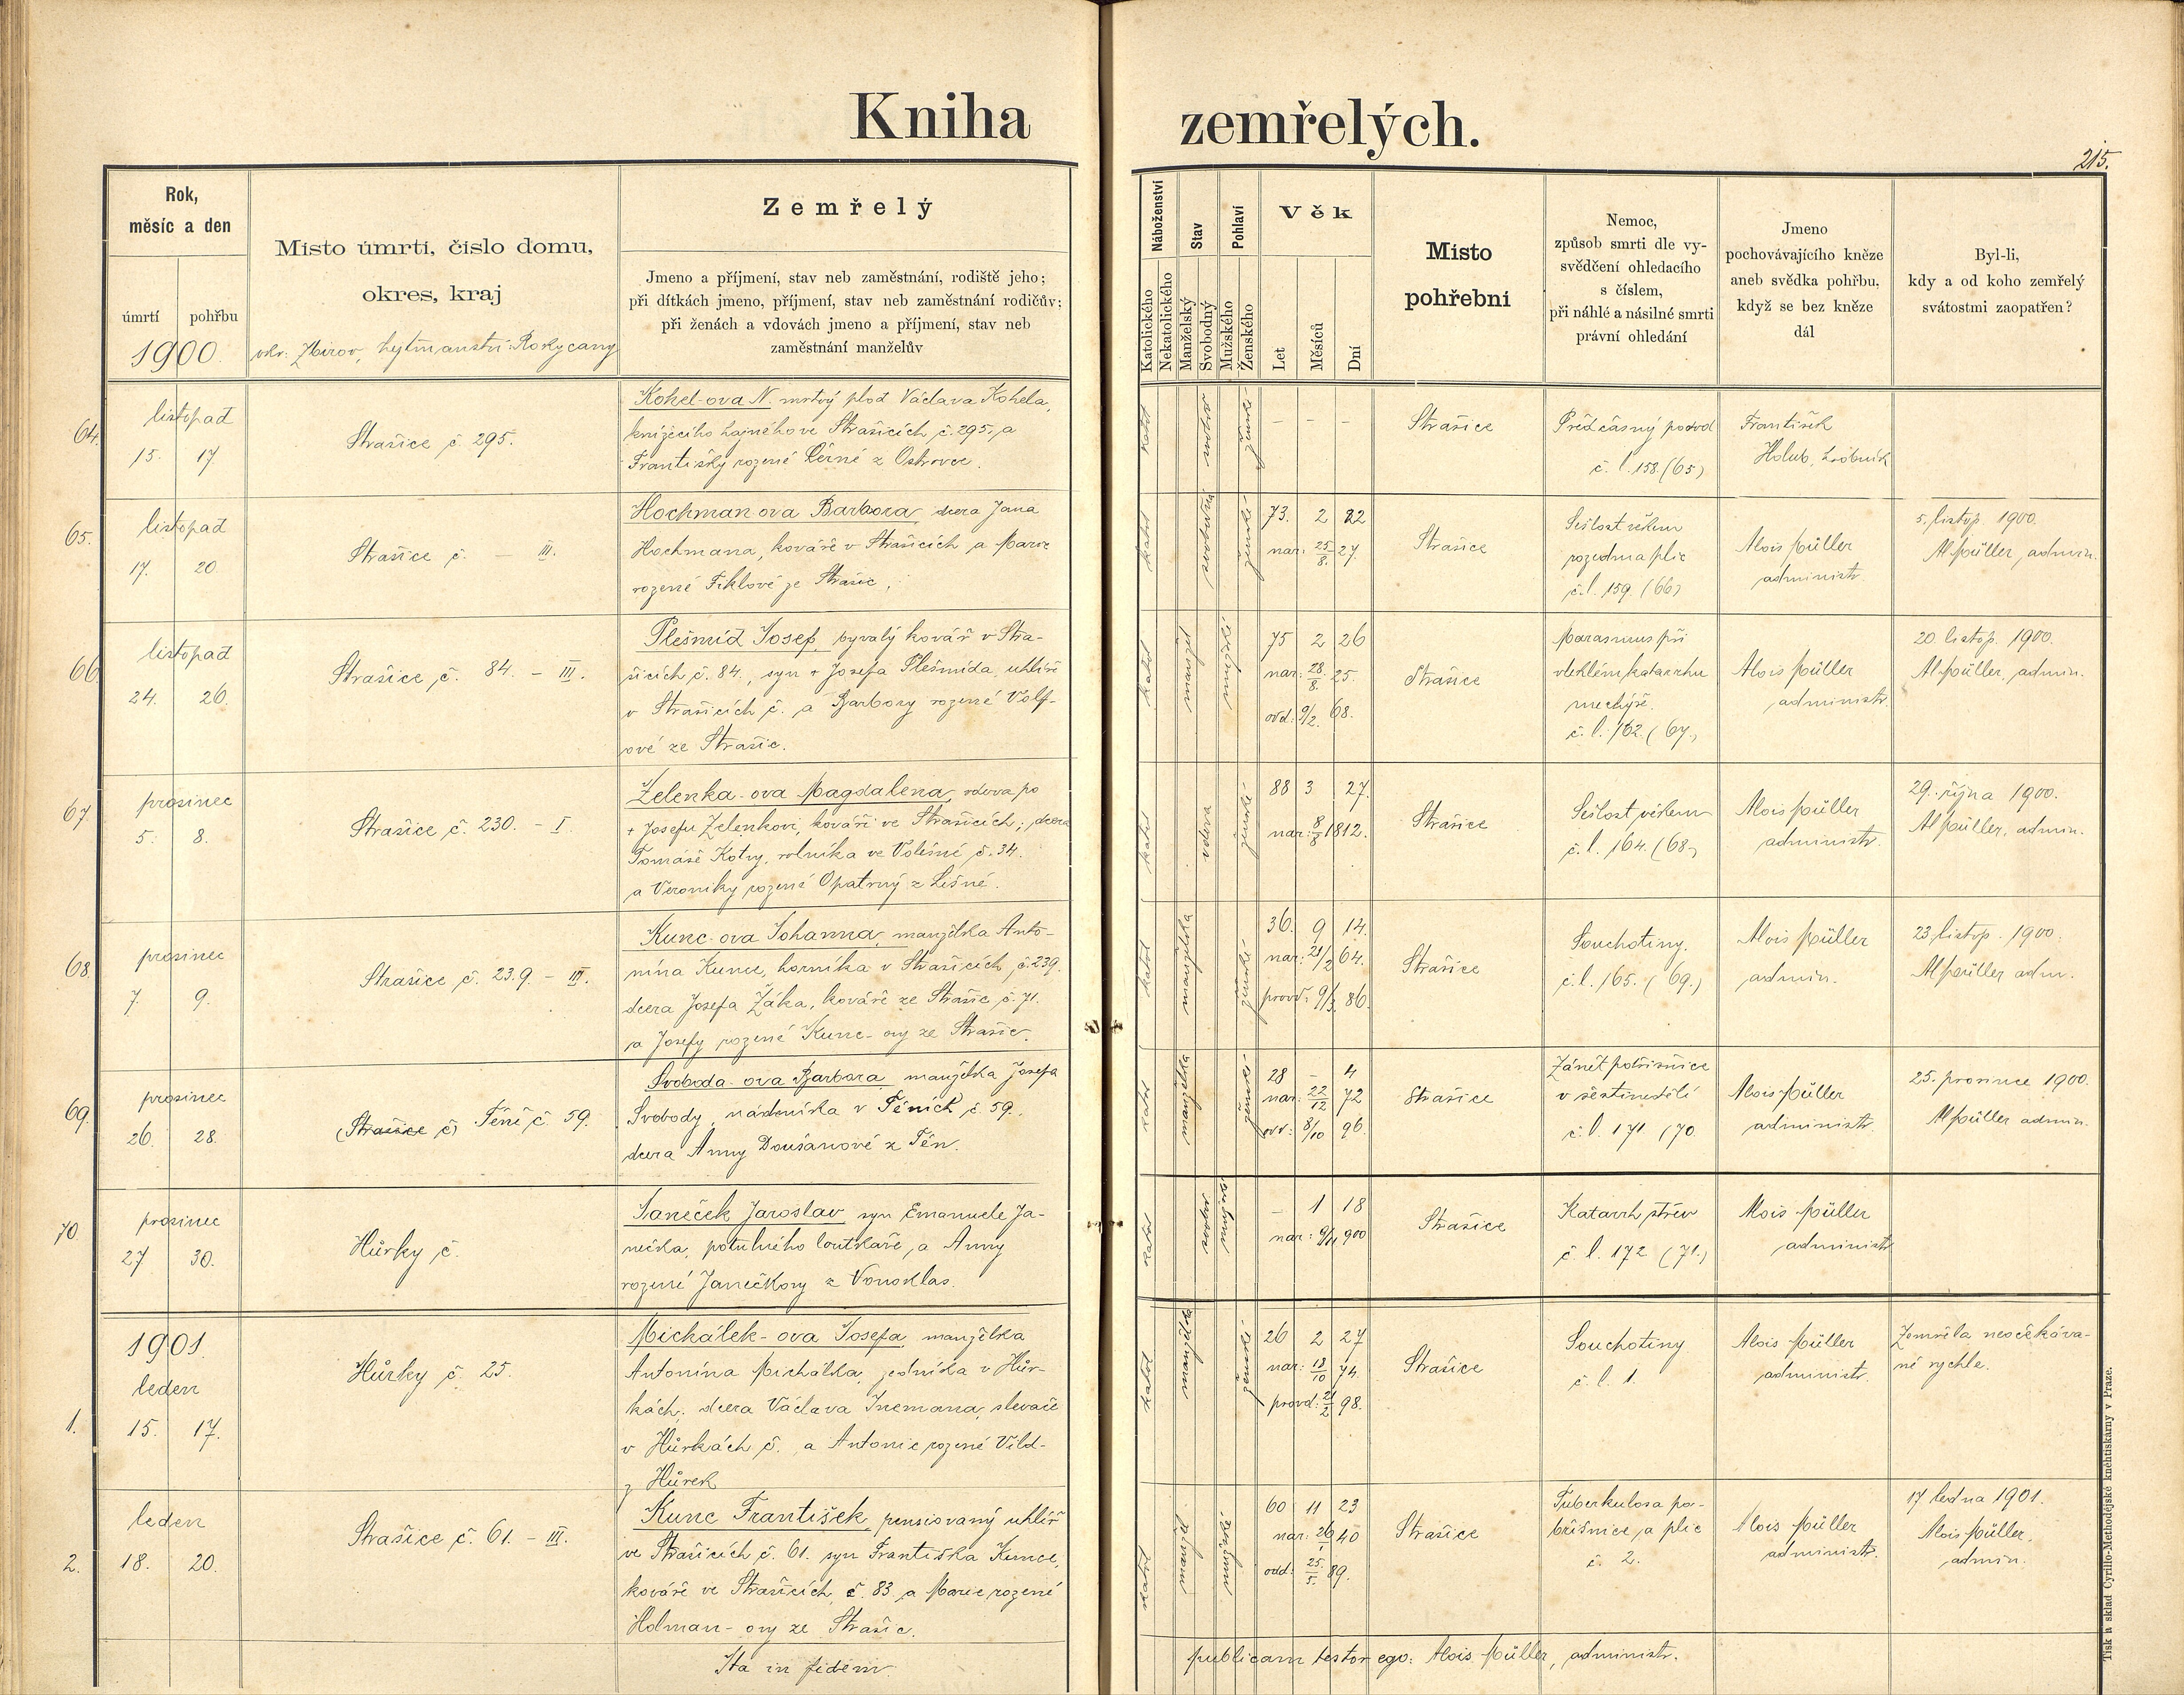 Kniha zemřelých.
215.
Rok,
měsíc a den
úmrtí pohřbu
1900.
Místo úmrtí, číslo domu,
okres, kraj
okr. Zbirov, hejtmanství: Rokycany
Zemřelý
Jmeno a příjmení, stav neb zaměstnání, rodiště jeho;
při dítkách jmeno, příjmení, stav neb zaměstnání rodičův;
při ženách a vdovách jmeno a příjmení, stav neb
zaměstnání manželův
Náboženství
Katolického
Nekatolického
Stav
Manželský
Svobodný
Pohlaví
Mužského
Ženského
Věk
Let
Měsíců
Dní
Místo
pohřební
Nemoc,
způsob smrti dle vy-
svědčení ohledacího
s číslem,
při náhlé a násilné smrti
právní ohledání
Jmeno
pochovávajícího kněze
aneb svědka pohřbu,
když se bez kněze
dál
Byl-li,
kdy a od koho zemřelý
svátostmi zaopatřen?
64.
listopad
15. 17
Strašice č. 295.
Kohel-ova N. mrtvý plod Václava Kohela,
knížecího hajného ve Strašicích č. 295, a
Františky rozené Černé z Ostrovce.
katol ženské
– – –
Strašice
Předčasný porod
č. l. 158. (65)
František
Holub, hrobník
65.
listopad
17. 20.
Strašice č. – III.
Hochmanova Barbora, dcera Jana
Hochmana, kováře v Strašicích a Marie
rozené Fiklové ze Strašic.
katol svobodná ženské
73. 2 22
nar: 25/8. 27.
Strašice
Sešlost věkem
rozedma plic
č. l. 159. (66)
Alois Müller
administr.
5. listop. 1900.
Al Müller, admin.
66.
listopad
24. 26.
Strašice č. 84. – III.
Plešmíd Josef, byvalý kovář v Stra-
šicích č. 84., syn + Josefa Plešmída, uhlíře
v Strašicích č. a Barbory rozené Volf-
ové ze Strašic.
katol manžel mužské
75 2 26
nar: 28/8. 25.
odd: 9/2. 68.
Strašice
Marasmus při
vleklém katarrhu
měchýře.
č. l. 162. (67.)
Alois Müller
administr.
20 listop. 1900.
Al. Müller, admin.
67.
prosinec
5. 8.
Strašice č. 230. – I.
Zelenka-ova Magdalena, vdova po
+ Josefu Zelenkovi, kováři ve Strašicích; dcera
Tomáše Kotvy, rolníka ve Volešné č. 34.
a Veroniky rozené Opatrný z Lišné.
katol vdova ženské
88 3 27.
nar: 8/8 1812.
Strašice
Sešlost věkem
č. l. 164. (68.)
Alois Müller
administr.
29. října 1900.
Al Müller, admin.
68.
prosinec
7. 9.
Strašice č. 239 – III.
Kunc-ova Johanna, manželka Anto-
nína Kunce, horníka v Strašicích, č. 239.
dcera Josefa Žáka, kováře ze Strašic č. 71.
a Josefy rozené Kunc-ovy ze Strašic.
katol manželka ženské
36. 9 14.
nar: 21/2 64.
provd: 9/3. 86.
Strašice
Souchotiny.
č. l. 165. (69.)
Alois Müller
admin.
23 listop. 1900.
Al Müller adm.
69.
prosinec
26. 28.
(Strašice č) Těně č. 59.
Svoboda-ova Barbora, manželka Josefa
Svobody, nádeníka v Těních č. 59.
dcera Anny Doušanové z Těn.
katol manželka ženské
28 – 4
nar: 22/12 72
8/10 96.
Strašice
Zánět pobřišnice
v šestinedělí
č. l. 171 (70.
Alois Müller
administr.
25. prosince 1900.
Al Müller admin.
70
prosinec
27 30.
Hůrky č.
Janeček Jaroslav, syn Emanuele Ja-
nečka, potulného loutkaře, a Anny
rozené Janečkovy z Vonoklas.
katol svobod mužské
– 1 18
nar: 9/11 900
Strašice
Katarrh střev
č. l. 172 (71.)
Alois Müller
administr
1901.
leden
1.
15. 17.
Hůrky č. 25.
Michálek-ova Josefa, manželka
Antonína Michálka, jedníka v Hůr-
kách; dcera Václava Inemana, slevače
v Hůrkách č. a Antonie rozené Vild-
z Hůrek
katol manželka ženské
26 2 27
nar: 18/10 74.
provd: 21/2 98.
Strašice
Souchotiny
č. l. 1.
Alois Müller
administr.
Zemřela neočekáva-
ně rychle.
2.
leden
18. 20.
Strašice č. 61. – III.
Kunc František, pensiovaný uhlíř
ve Strašicích č. 61. syn Františka Kunce,
kováře ve Strašicích, č. 83 a Marie rozené
Holman-ovy ze Strašic.
katol manžel mužské
60 11 23
nar: 26/1 40
odd: 25/5. 89.
Strašice
Tuberkulosa po-
břišnice a plic
č. 2.
Alois Müller
administr.
17 ledna 1901.
Alois Müller,
admin.
Ita in fidem publicam testor ego: Alois Müller, administr.
Tisk a sklad Cyrillo-Methodějské kněhtiskárny v Praze.